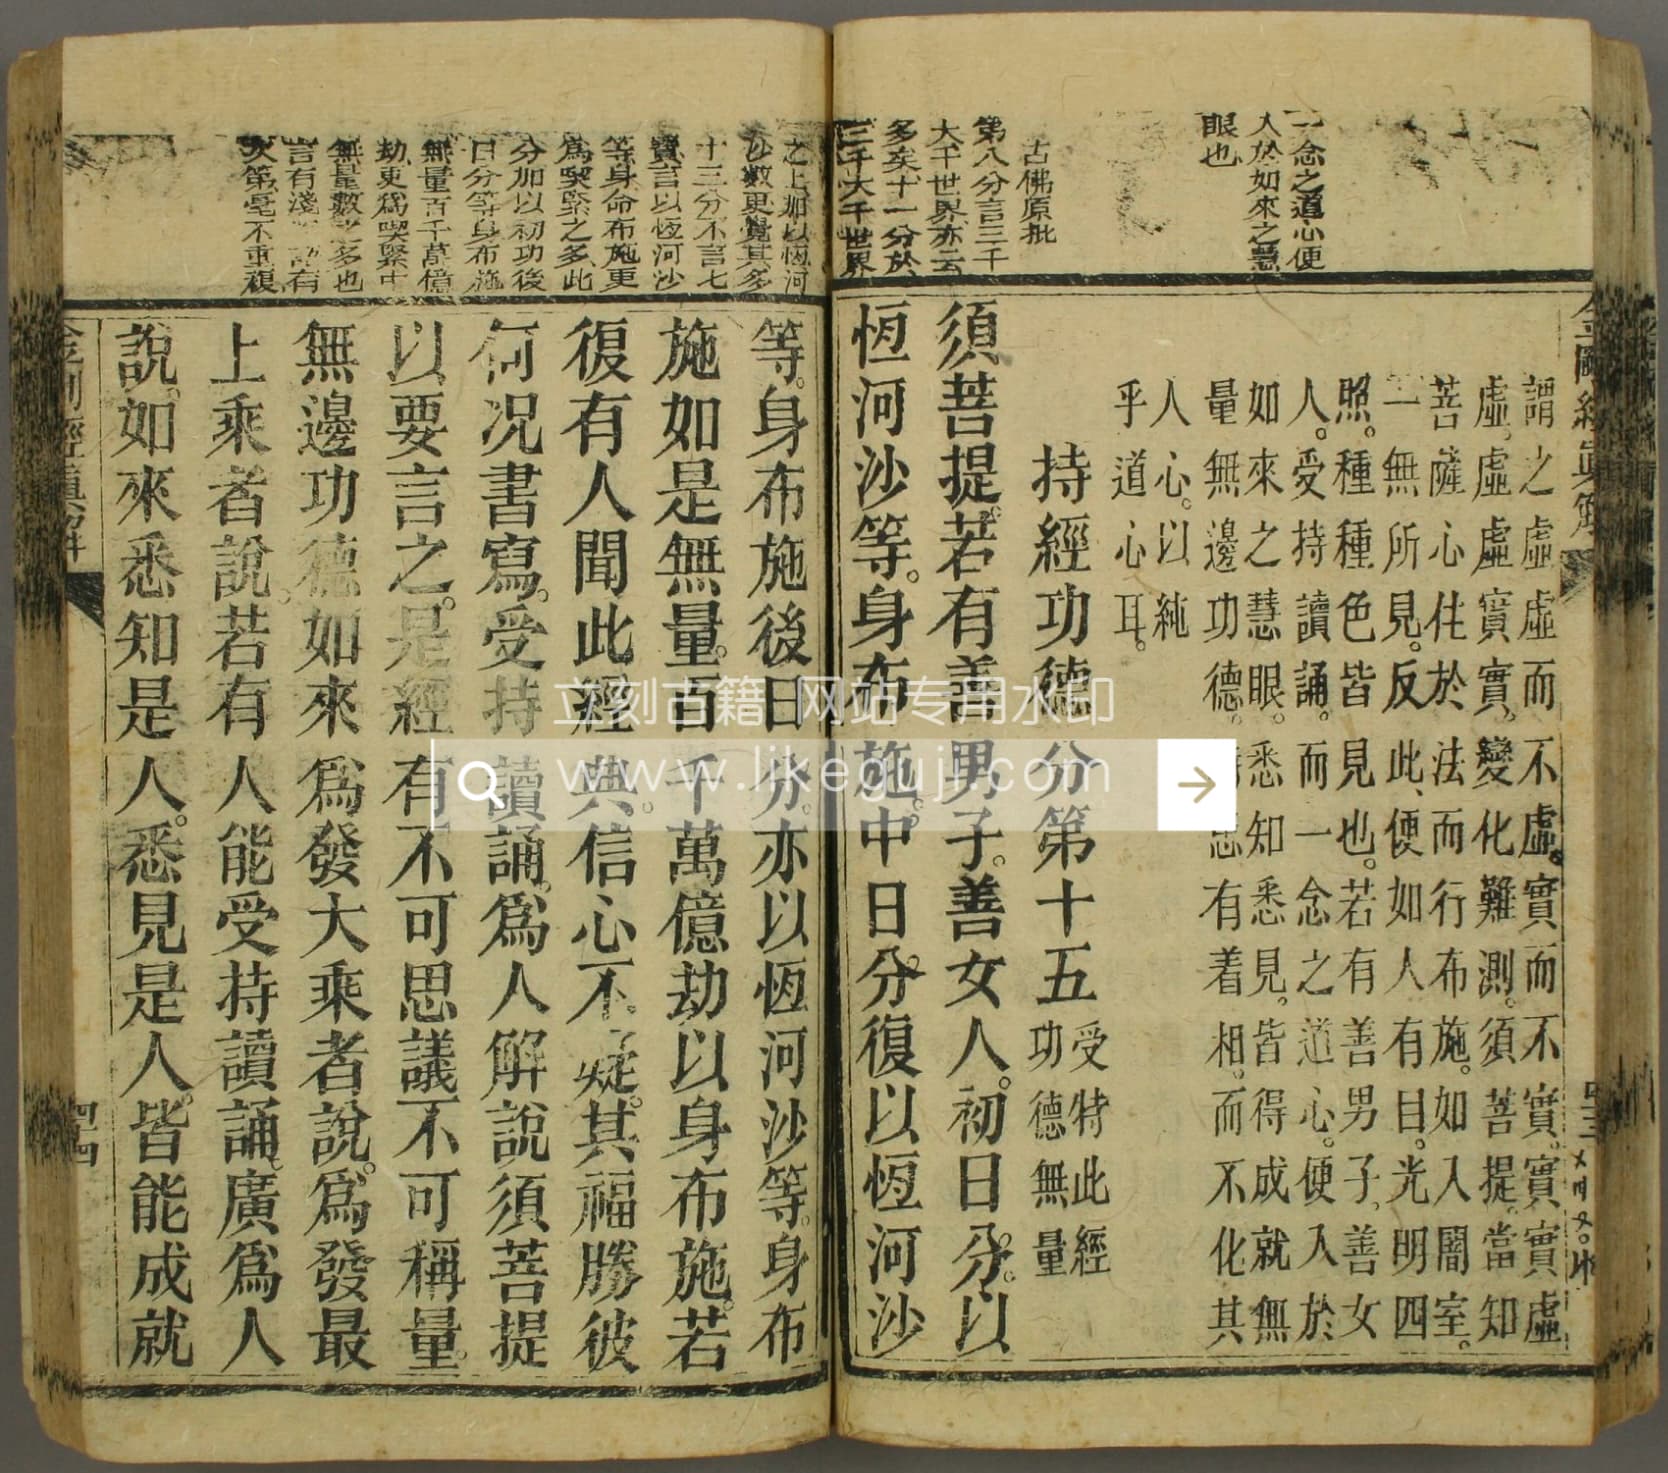 一念之道心便
人於如來之慧
眼也
古佛原批
第八分言三千
大千世界亦云
多矣十一分於
三千大千世界
金剛經眞解
謂之虛虛而不虛。實而不實。實實虛
虛。虛虛實實。變化難測。須菩提。當知
菩薩心住於法而行布施。如入闇室。
一無所見。反此、便如人有目。光明四
照。種種色皆見也。若有善男子。善女
人。受持讀誦。而一念之道心。便入於
如來之慧眼。悉知悉見。皆得成就無
量無邊功德。有着相。而不化其
人心。以純
乎道心耳。
持經功德分第十五 受持此經
功德無量
須菩提。若有善男子。善女人。初日分。以
恆河沙等。身布施。中日分。復以恆河沙
四三
之上加以恆河
沙數更覺其多
十三分不言七
寶言以恆河沙
等身命布施更
爲喫緊之多此
分加以初功後
日分等身布施
無量百千萬億
劫更爲喫緊中
無量數之多也
言有淺有
次第毫不重複
等。身布施後日分。亦以恆河沙等。身布
施如是無量。百千萬億劫以身布施。若
復有人聞此經典。信心不疑。其福勝彼
何况書寫。受持讀誦。爲人解說須菩提
以要言之。是經有不可思議不可稱量。
無邊功德如來爲發大乘者說。爲發最
上乘者說。若有人能受持讀誦。廣爲人
說。如來悉知是人。悉見是人。皆能成就
金剛經眞解
四四
立刻古籍 网站专用水印
www.likeguji.com